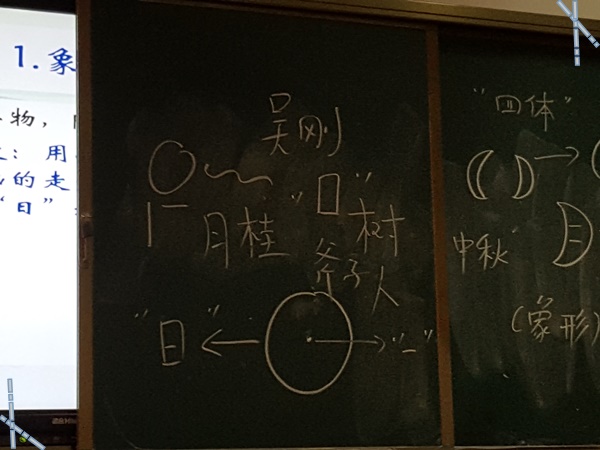 1. 象
物,
: 用
的走
"日"
吴刚
"口"
月桂 树
斧子人
"日"
"一"
"四体"
中秋
(象形)